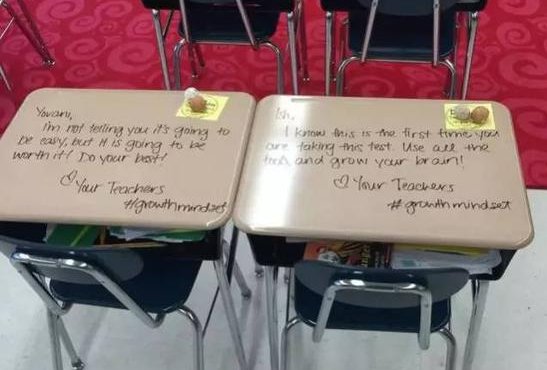 I'm not telling you it's going to
be easy, but it is going to be
worth it! Do your best!
♡ Your Teachers
#growthmindset
Ish,
I know this is the first time you
are taking this test. Use all the
tools and grow your brain!
♡ Your Teachers
#growthmindset